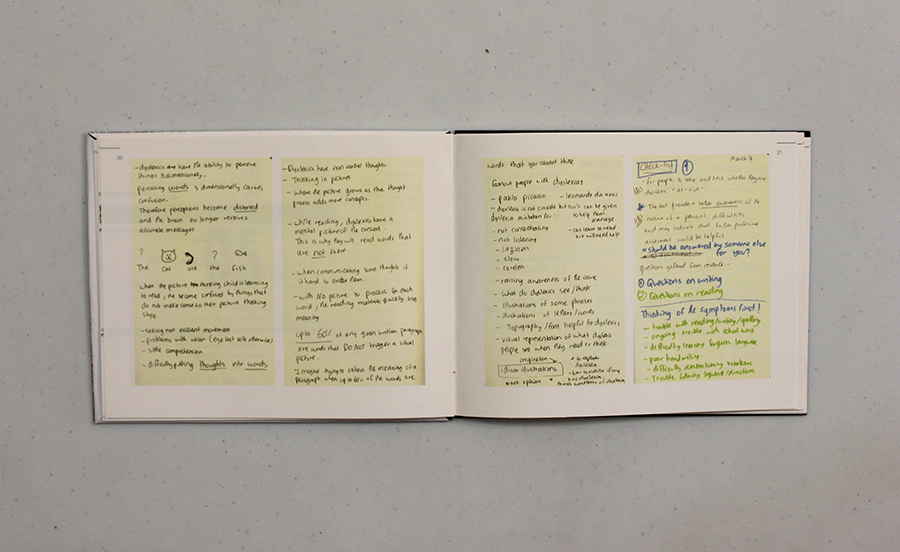 - dyslexics have the ability to perceive
things 3 dimensionally,
perceiving words 3 dimensionally causes
confusion.
Therefore perceptions become distorted
and the brain no longer receives
accurate messages
? ? ?
The cat ate the fish
When the picture thinking child is learning
to read, he become confused by things that
do not make sense to their picture thinking
style.
- problems with vision
- little comprehension
- difficulty putting thoughts into words.
- Dyslexics have non verbal thoughts.
- Thinking in pictures
- where the picture grows as the thought
process adds more concepts.
- While reading, dyslexics have a
mental picture of the content.
This is why they will read words that
are not there
- when communicating some thoughts it
is hard to order them.
- with NO picture to process for each
word, the reading material quickly loses
meaning
up to 60% of any given written paragraph
are words that DO NOT trigger a visual
picture.
Imagine trying to obtain the meaning of a
paragraph when up to 60% of the words are
words that you cannot think
Famous people with dyslexia:
- pablo picasso - leonardo da vinci
- dyslexia is not curable but tools can be given
to help them
manage
dyslexia mistaken for:-
- not concentrating
- can learn to read
but will need help
- not listening
- laziness
- slow
- careless
- raising awareness of the issue
- What do dyslexics see/think
- illustrations of some phrases
- illustrations of letters/words
- Typography/font helpful for dyslexics
- visual representation of what dyslexic
people see when they read or think
inspiration
idiom illustrations
March 7
CHECK-list
- for people to take and test whether they are
dyslexic "at-risk"
nature of a person's difficulties
and may indicate that further professional
assessment would be helpful
* should be answered by someone else
for you?
questions gathered from research -
① Questions on writing
② Questions on reading
Thinking of the symptoms first!
- trouble with reading/writing/spelling
- ongoing trouble with school work
- difficulty learning foreign language
- poor handwriting
- difficulty remembering numbers
- Trouble following sequence/directions